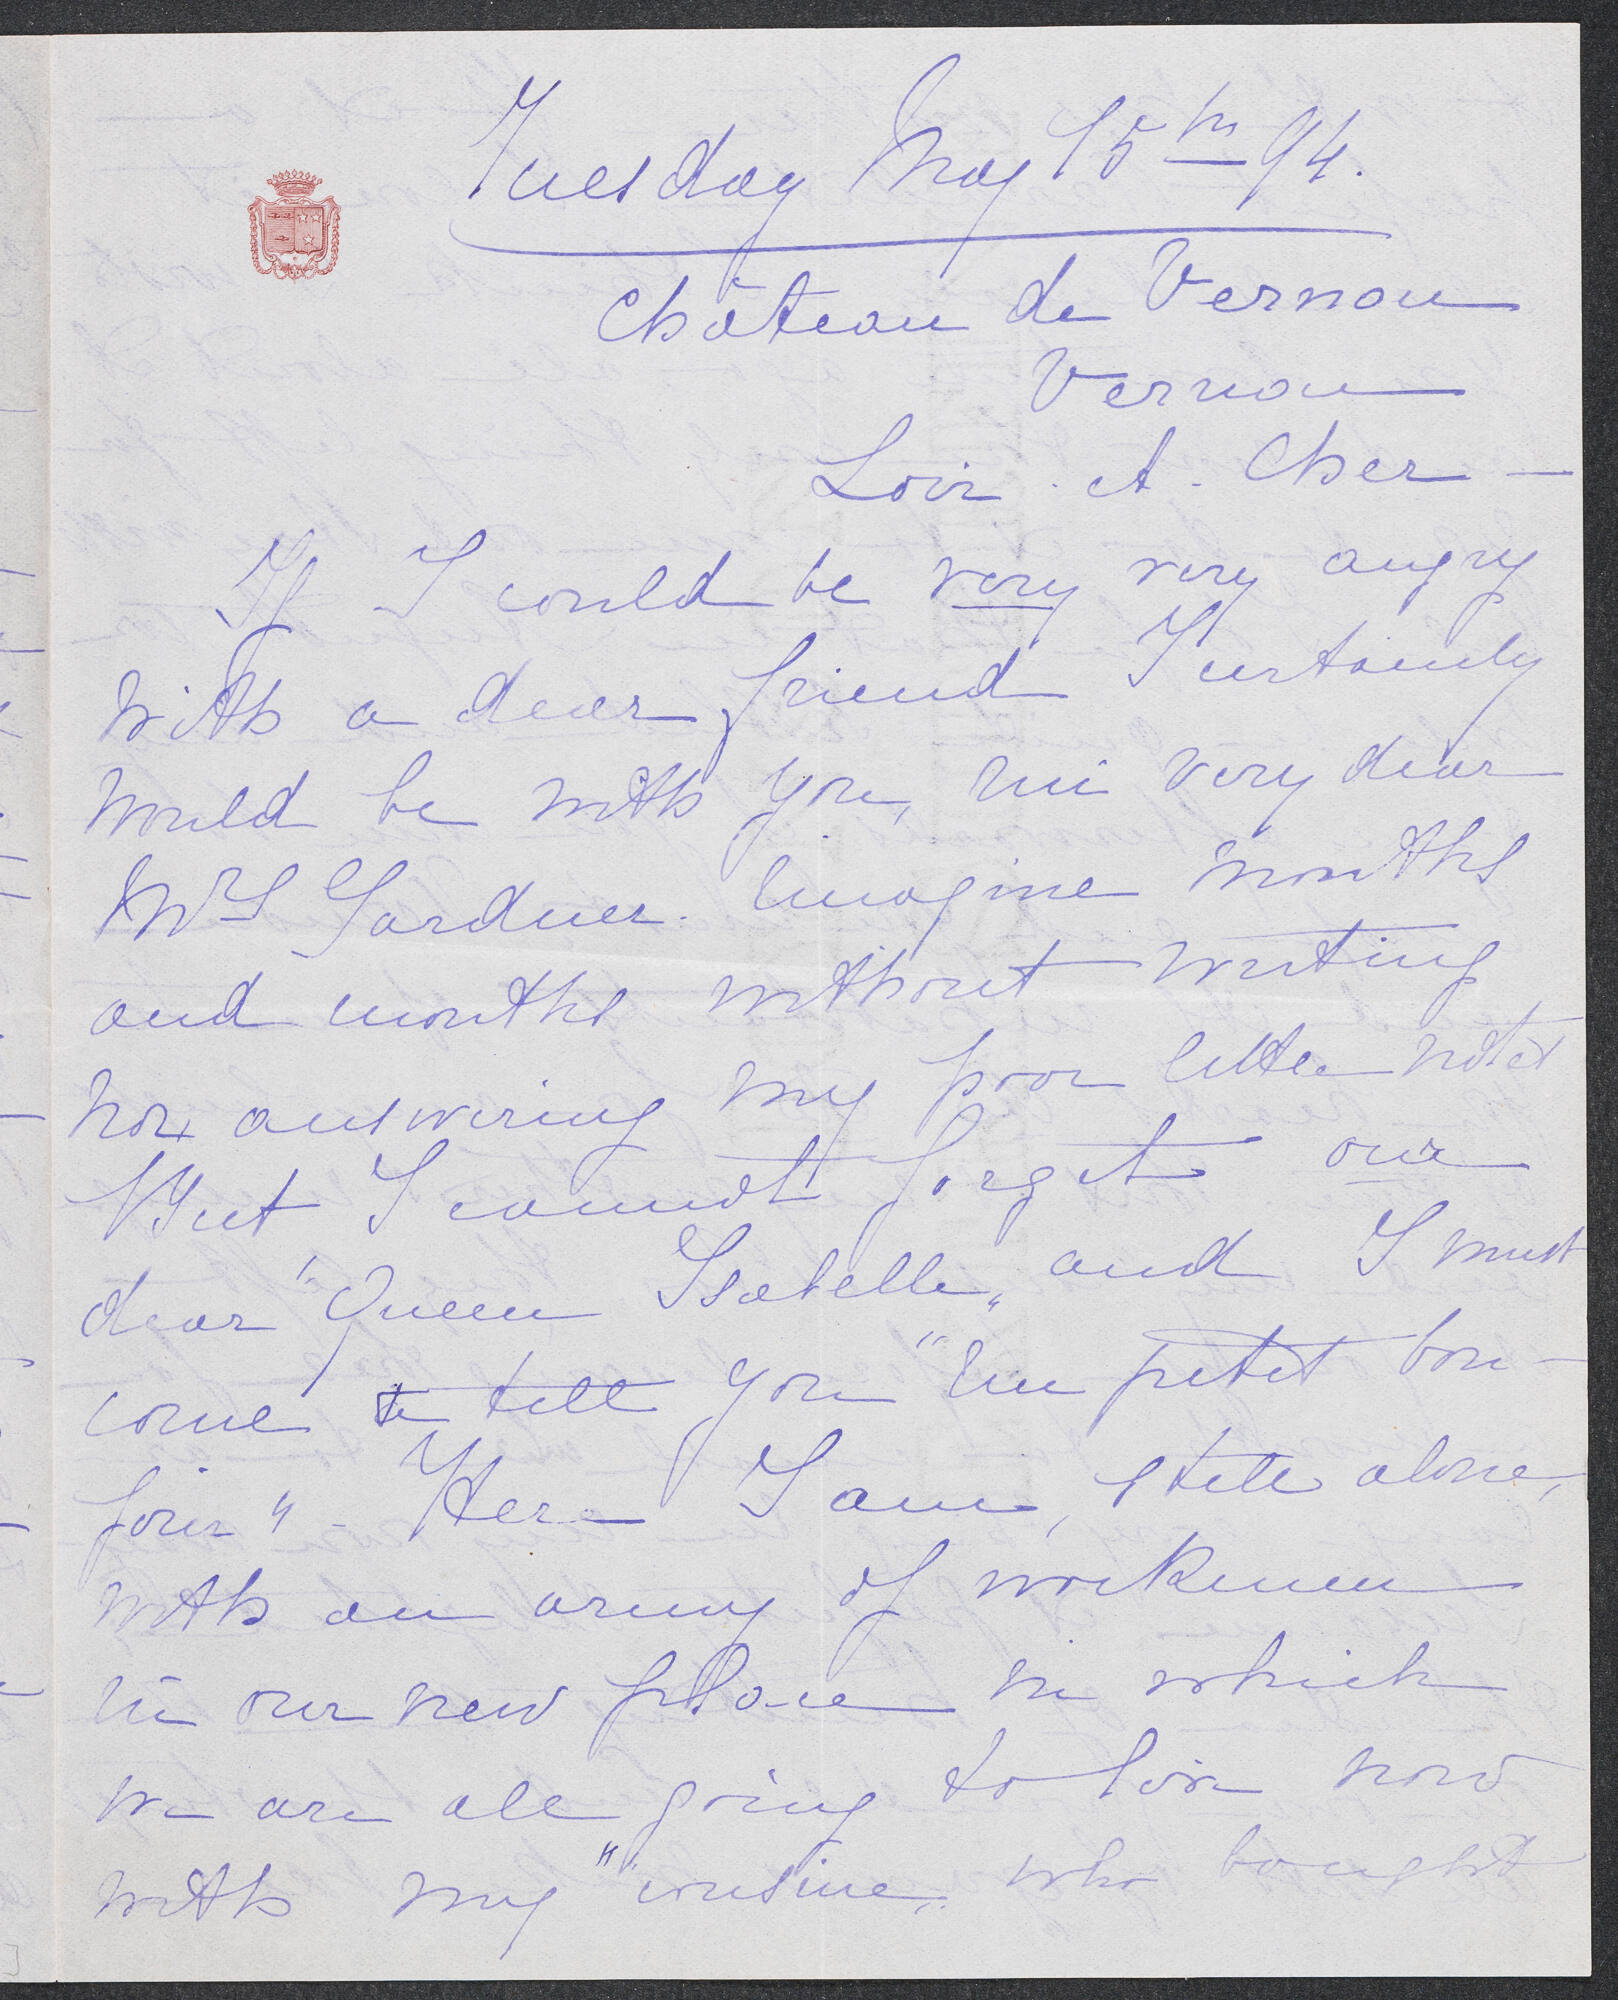 Tuesday May 15th 94.
Château de Vernou
Vernou
Loir. et. Cher -
If I could be very very angry
with a dear friend I certainly
would be with you, mi very dear
Mrs Gardner. Imagine months
and months without writing
nor answering my poor little notes
But I cannot forget our
dear "Queen Isabelle" and I must
come to tell you "un petit bon-
jour" - Here I am, stell alone,
with an army of workmen
in our new place in which
we are all going to live now
with my "cousine" who bought